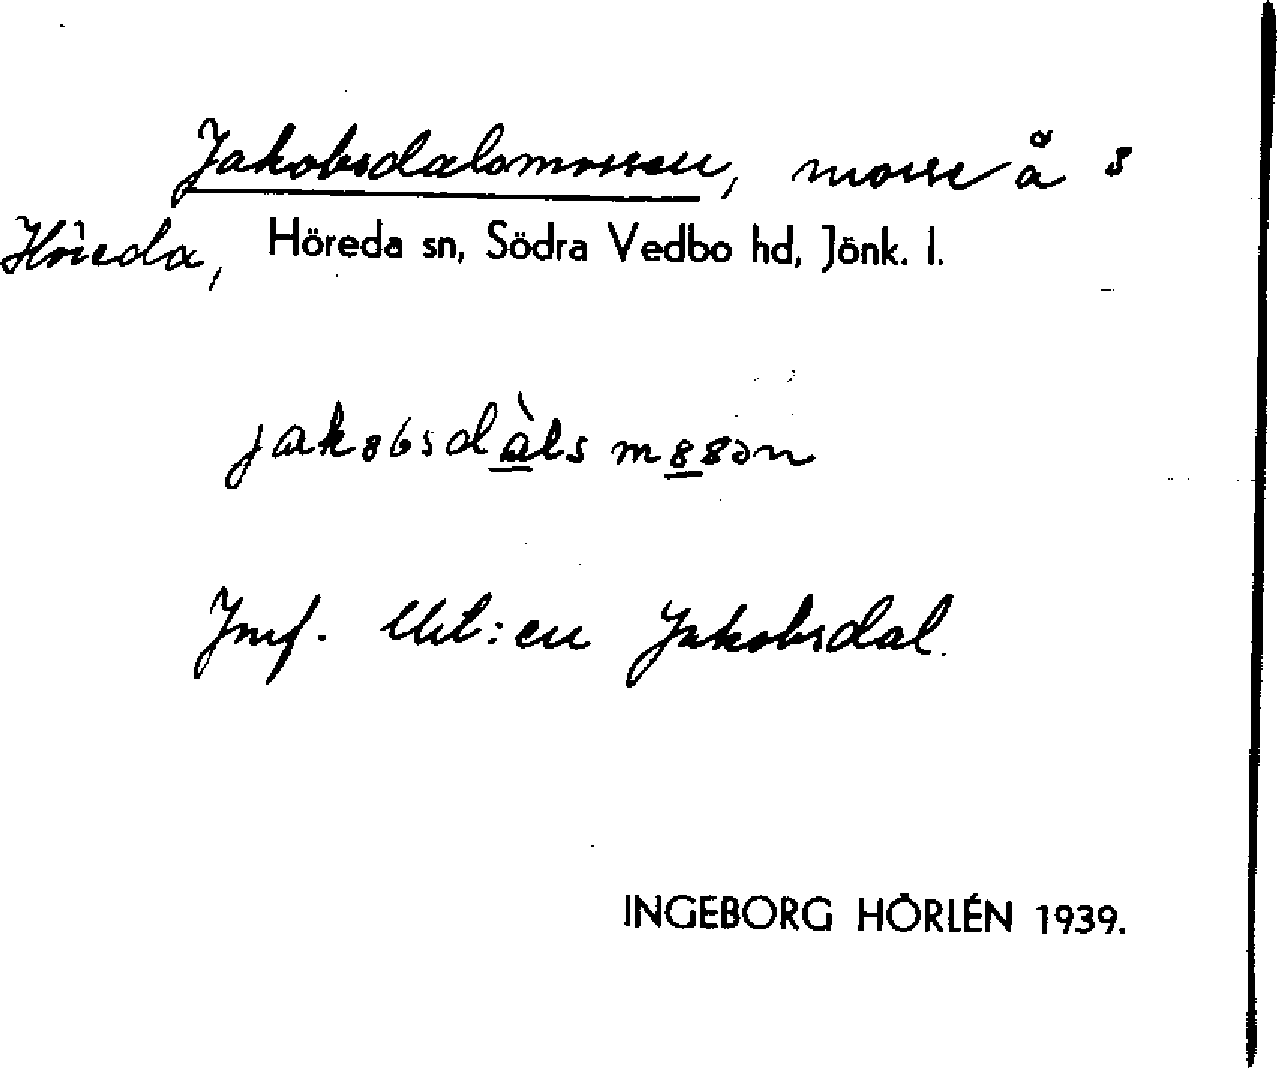 Jakobsdalsmossen, mosse å s
Höreda, Höreda sn, Södra Vedbo hd, Jönk. l.
jakobsdàls mosən
Jmf. Utl:en Jakobsdal.
INGEBORG HÖRLÉN 1939.